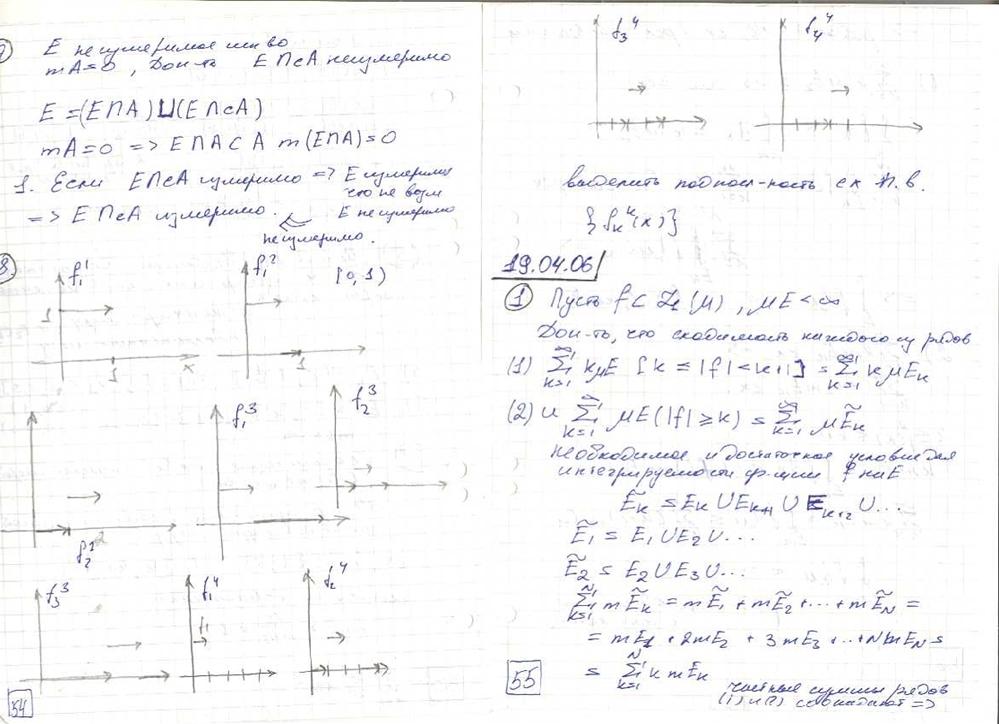 E неизмеримое мн-во
mA=0, Док-ть E∩cA неизмеримо
E = (E∩A)⊔(E∩cA)
mA=0 => E∩A⊂A m(E∩A)=0
1. Если E∩cA измеримо => E измеримо
что не возм
=> E∩cA измеримо. <= E неизмеримо
неизмеримо.
8
f₁¹ f₁² [0,1)
1
1 x
f₁³ f₂³
f₂²
f₃³ f₁⁴ f₂⁴
54
f₃⁴ f₄⁴
выделить подпосл-ность сх п.в.
{f_k^k(x)}
19.04.06
① Пусть f ⊂ L₁(μ), μE<∞
Док-ть, что сходимость каждого из рядов
(1) ∑_{k=1}^∞ kμE {k ≤ |f| < k+1} = ∑_{k=1}^∞ k μE_k
(2) и ∑_{k=1}^∞ μE(|f| ≥ k) = ∑_{k=1}^∞ μẼ_k
Необходимое и достаточное условие для
интегрируемости ф-ции f на E
Ẽ_k = E_k ∪ E_{k+1} ∪ E_{k+2} ∪ ...
Ẽ₁ = E₁ ∪ E₂ ∪ ...
Ẽ₂ = E₂ ∪ E₃ ∪ ...
∑_{k=1}^N mẼ_k = mẼ₁ + mẼ₂ + ... + mẼ_N =
= mE₁ + 2mE₂ + 3mE₃ + ... + N mE_N =
= ∑_{k=1}^N k mE_k
частные суммы рядов
(1) и (2) совпадают =>
55